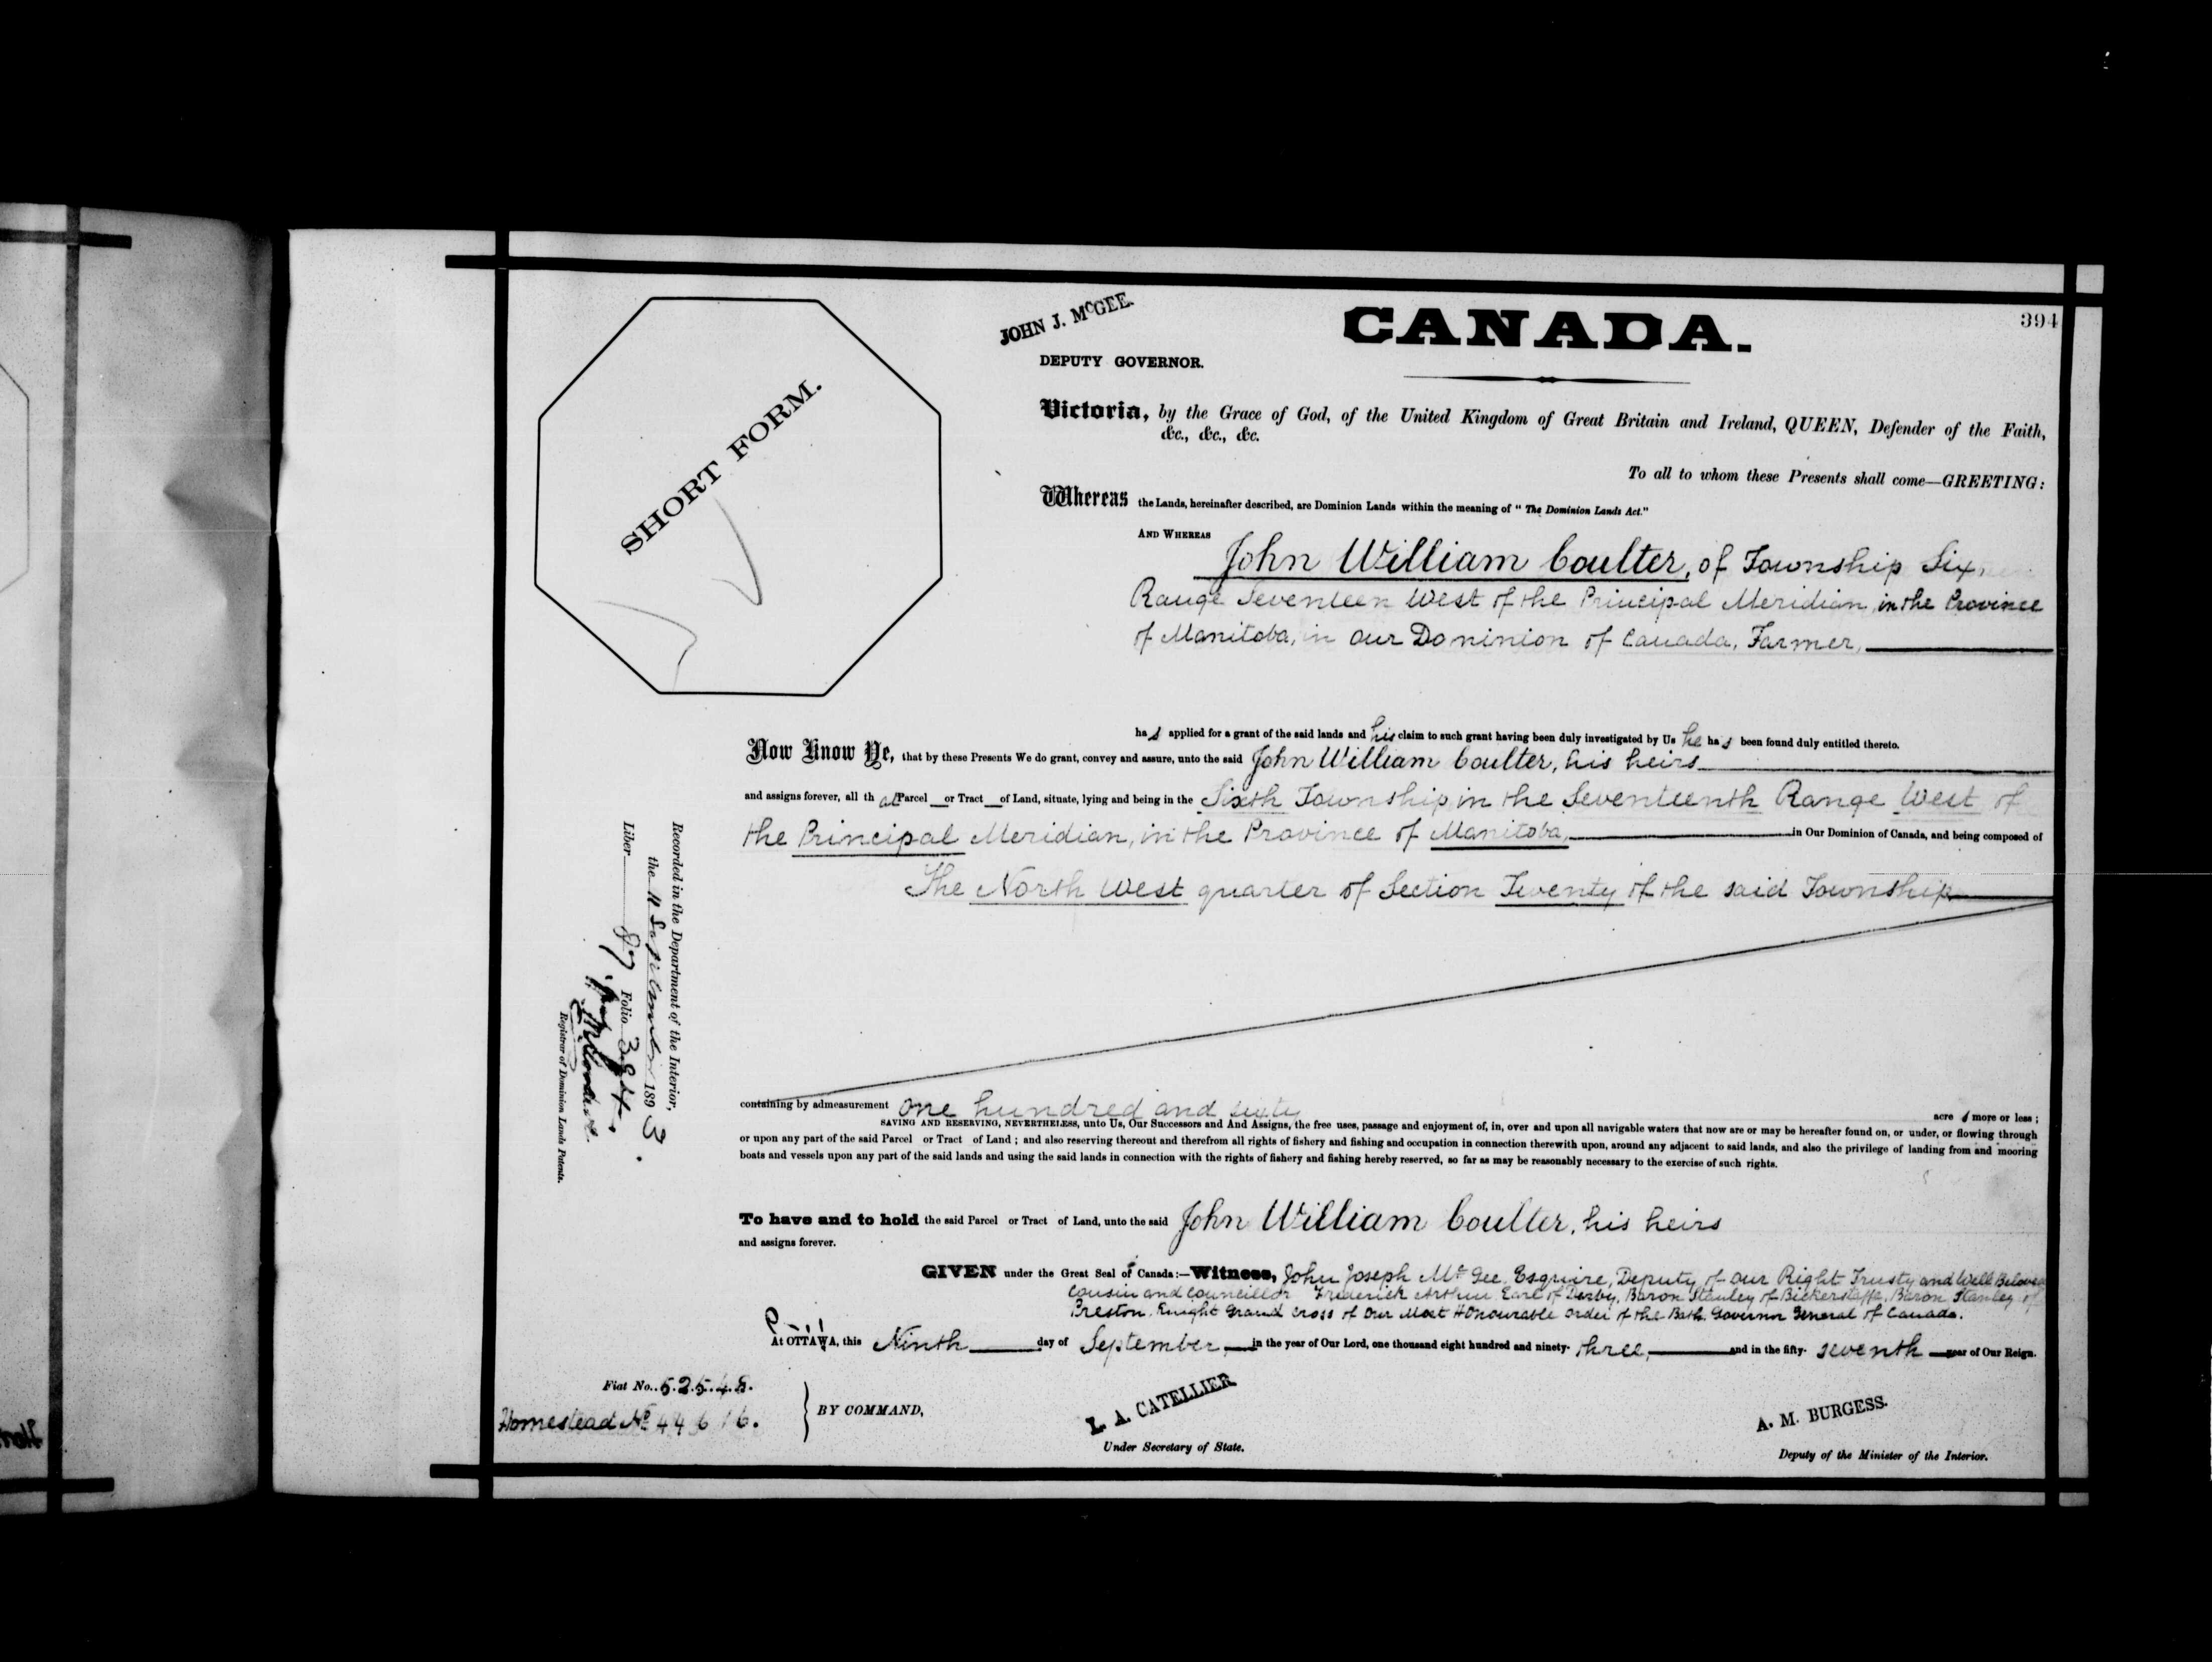 394
JOHN J. McGEE.
DEPUTY GOVERNOR.
CANADA.
SHORT FORM.
Victoria, by the Grace of God, of the United Kingdom of Great Britain and Ireland, QUEEN, Defender of the Faith,
&c., &c., &c.
To all to whom these Presents shall come—GREETING:
Whereas the Lands, hereinafter described, are Dominion Lands within the meaning of "The Dominion Lands Act."
AND WHEREAS
John William Coulter, of Township Six,
Range Seventeen West of the Principal Meridian, in the Province
of Manitoba, in Our Dominion of Canada, Farmer,
has applied for a grant of the said lands and his claim to such grant having been duly investigated by Us he has been found duly entitled thereto.
Now Know Ye, that by these Presents We do grant, convey and assure, unto the said John William Coulter, his heirs
and assigns forever, all that Parcel or Tract of Land, situate, lying and being in the Sixth Township in the Seventeenth Range West of
the Principal Meridian, in the Province of Manitoba, in Our Dominion of Canada, and being composed of
The North West quarter of Section Twenty of the said Township
containing by admeasurement one hundred and sixty acres more or less;
SAVING AND RESERVING, NEVERTHELESS, unto Us, Our Successors and And Assigns, the free uses, passage and enjoyment of, in, over and upon all navigable waters that now are or may be hereafter found on, or under, or flowing through
or upon any part of the said Parcel or Tract of Land; and also reserving thereout and therefrom all rights of fishery and fishing and occupation in connection therewith upon, around any adjacent to said lands, and also the privilege of landing from and mooring
boats and vessels upon any part of the said lands and using the said lands in connection with the rights of fishery and fishing hereby reserved, so far as may be reasonably necessary to the exercise of such rights.
To have and to hold the said Parcel or Tract of Land, unto the said John William Coulter, his heirs
and assigns forever.
GIVEN under the Great Seal of Canada:—Witness, John Joseph McGee Esquire, Deputy of Our Right Trusty and Well Beloved
Cousin and Councillor Frederick Arthur Earl of Derby, Baron Stanley of Bickerstaffe, Baron Stanley of
Preston, Knight Grand Cross of Our Most Honourable Order of the Bath Governor General of Canada.
At OTTAWA, this Ninth day of September, in the year of Our Lord, one thousand eight hundred and ninety-three, and in the fifty-seventh year of Our Reign.
Fiat No. 52548.
Homestead No 44616.
BY COMMAND,
L. A. CATELLIER
Under Secretary of State.
A. M. BURGESS.
Deputy of the Minister of the Interior.
Recorded in the Department of the Interior,
the 11 September 1893.
Liber 87 Folio 394.
Registrar of Dominion Lands Patents.